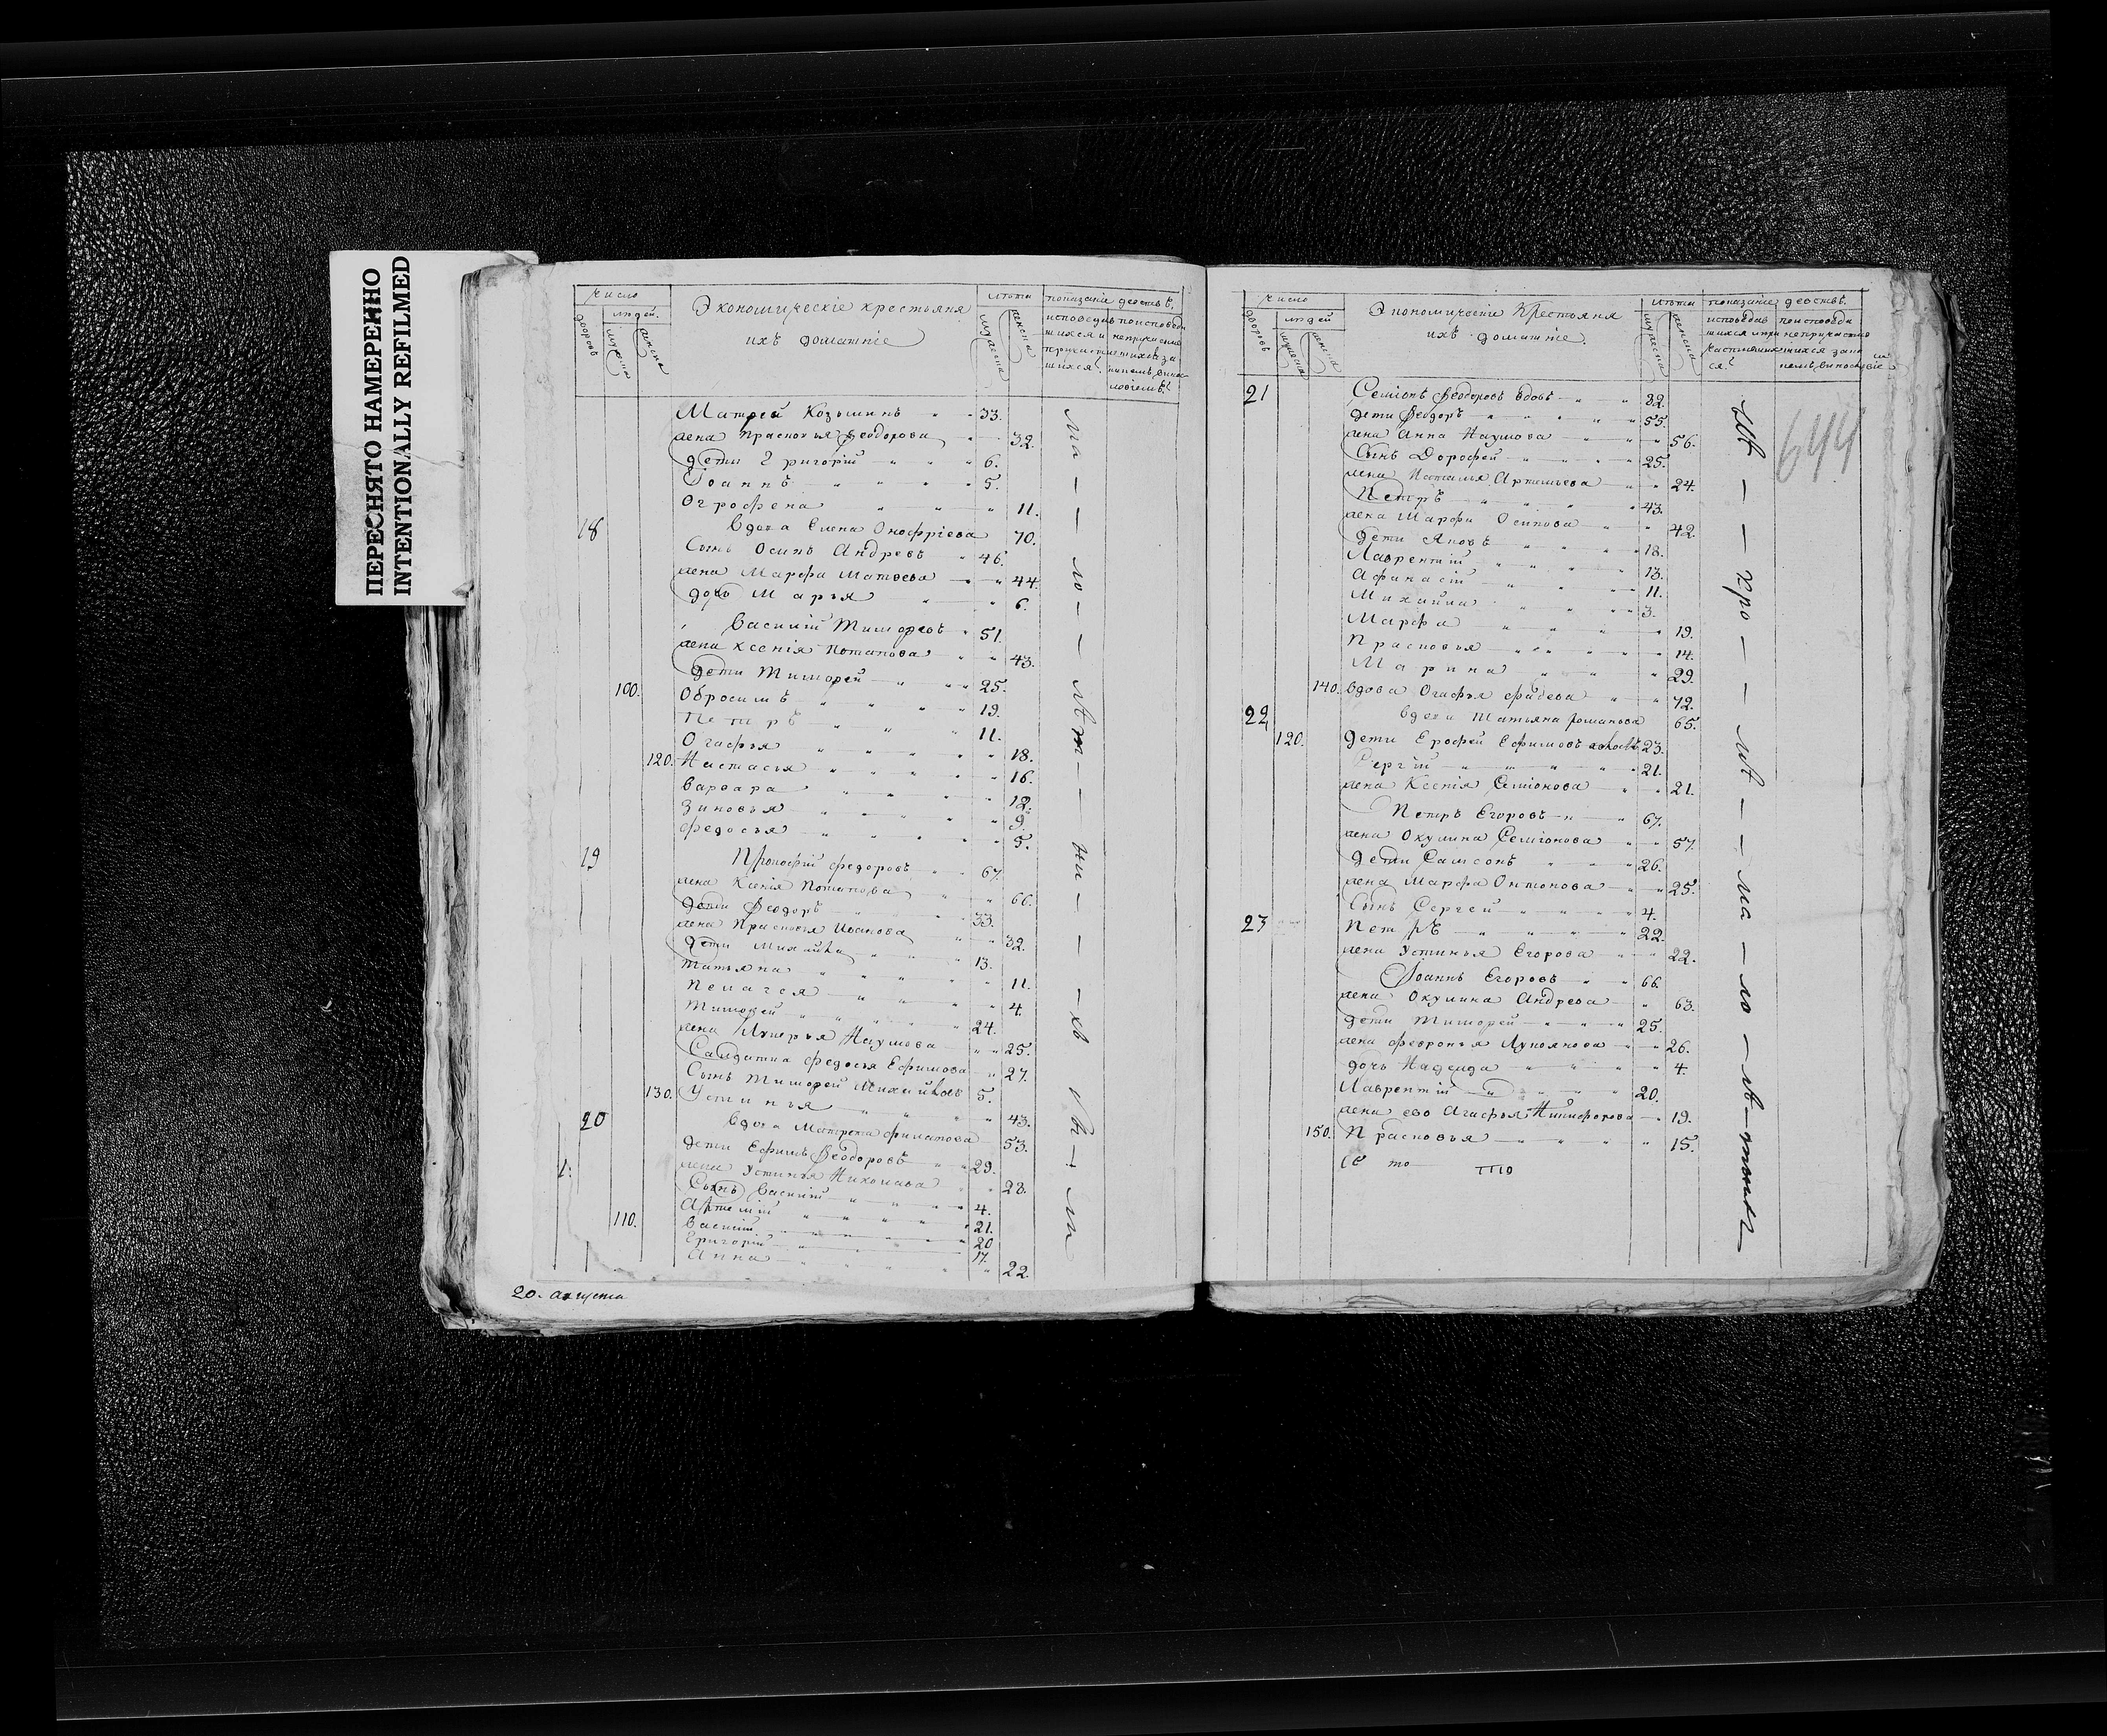 ПЕРЕСНЯТО НАМЕРЕННО
INTENTIONALLY REFILMED
число
людей.
дворовъ
мужска
женска
Экономическіе крестьяня
ихъ домашніе
мужеска
женска
показаніе действъ.
Матфей Козьминъ 33.
жена Прасковья Феодорова 32.
дети Григорій 6.
Іоаннъ 5.
Огрофена 11.
18 вдова Елена Онофріева 70.
Сынъ Осипъ Андревъ 46.
жена Марфа Матвева 44.
дочь Марья 6.
Василій Тимофеевъ 51.
жена Ксенія Потапова 43.
дети Тимофей 25.
100. Обросимъ 19.
Петръ 11.
Огафья 18.
120. Настасья 16.
Варвара 12.
Зиновья 9.
Федосья 5.
19 Прокофій Федоровъ 67.
жена Ксенія Потапова 66.
дети Феодоръ 33.
жена Прасковья Иванова 32.
дети Михайла 13.
Татьяна 11.
Пелагея 4.
Тимофей 24.
жена Лукерья Наумова 25.
Салдатка Федосья Ефимова 27.
Сынъ Тимофей Михайловъ 5.
130. Устинья 43.
20 вдова Матрона Филатова 53.
дети Ефимъ Феодоровъ 29.
жена Устинья Николаева 28.
Сынъ Василій 4.
Артемій 21.
110. Василій 20
Григорій 17.
Анна 22.
20. августа
число
людей
дворовъ
мужеска
женска
Экономическіе Крестьяня
ихъ домашніе.
мужеска
женска
показаніе действъ.
644
21 Семіонъ Феодоровъ вдовъ 82.
дети Феодоръ 55.
жена Анна Наумова 56.
Сынъ Дорофей 25.
жена Наталья Артемьева 24.
Петръ 43.
жена Марфа Осипова 42.
дети Яковъ 18.
Лаврентій 13.
Афанасій 11.
Михайла 3.
Марфа 19.
Прасковья 14.
Марина 29.
140. вдова Огафья Фадеева 72.
22 вдова Татьяна Романова 65.
120. дети Ерофей Ефимовъ 23.
Сергій 21.
жена Ксенія Семіонова 21.
Петръ Егоровъ 67.
жена Окулина Семіонова 57.
дети Самсонъ 26.
жена Марфа Онтонова 25.
Сынъ Сергей 4.
23 Петръ 22.
жена Устинья Егорова 22.
Іоаннъ Егоровъ 66.
жена Окулина Андрева 63.
дети Тимофей 25.
жена Февронья Лукоянова 26.
дочь Надежда 4.
Лаврентій 20.
жена ево Агафья Никифорова 19.
150. Прасковья 15.